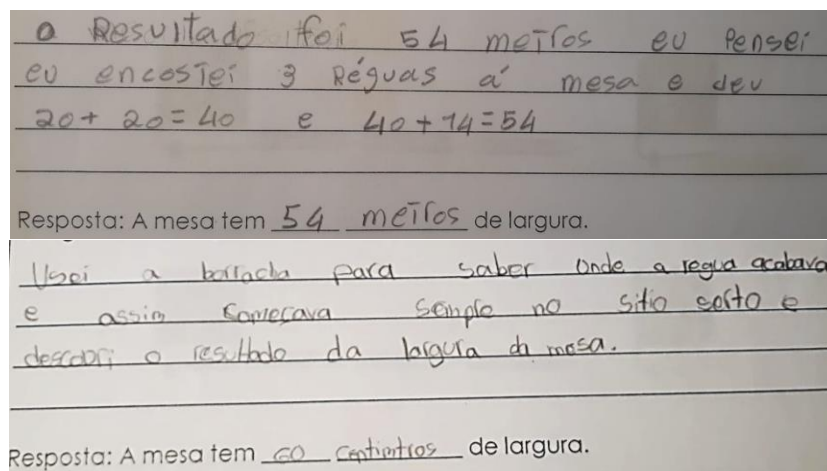 o Resultado foi 54 metros eu Pensei
eu encostei 3 Réguas á mesa e deu
20+ 20=40 e 40+14=54
Resposta: A mesa tem 54 metros de largura.
Usei a borracha para saber onde a regua acabava
e assim comesava sempre no sitio serto e
descobri o resultado da largura da mesa.
Resposta: A mesa tem 60 centimtros de largura.